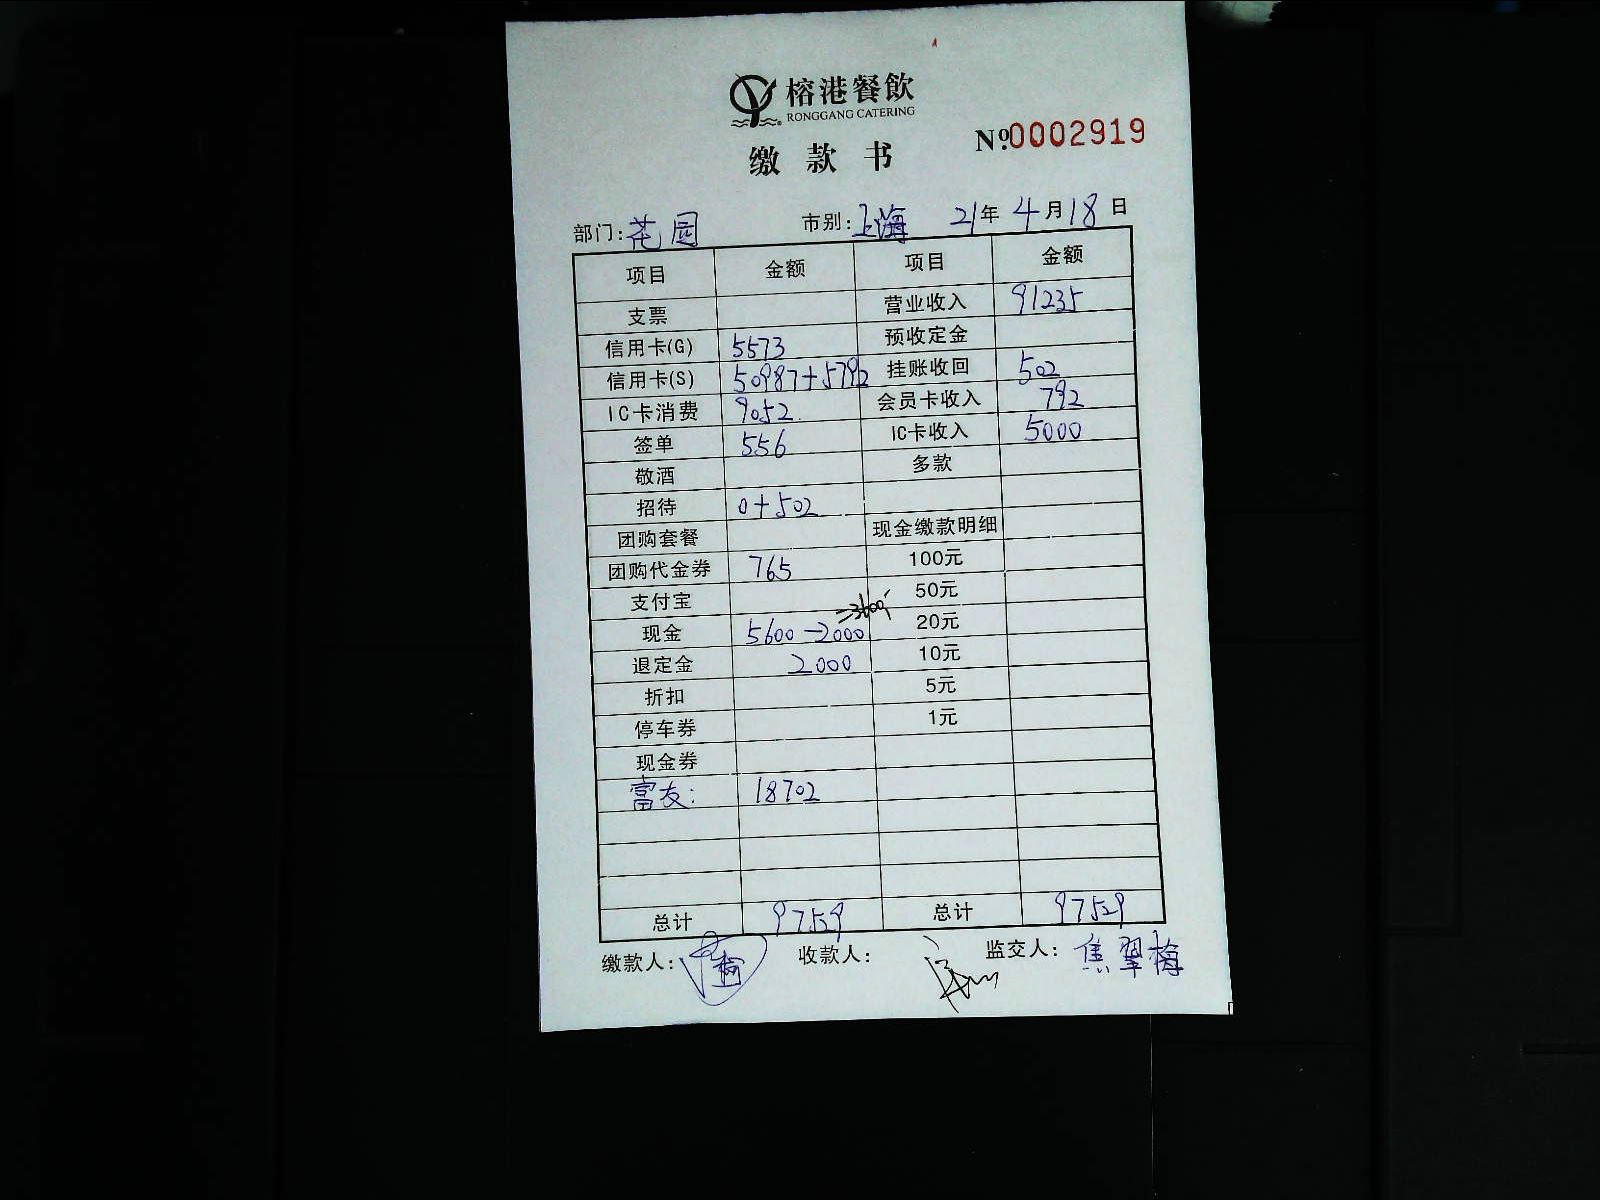 榕港餐飲
RONGGANG CATERING
缴款书
№0002919
部门:花园 市别:上海 21年4月18日
项目 金额 项目 金额
支票 营业收入 91235
信用卡(G) 5573 预收定金
信用卡(S) 50987+5792 挂账收回 502
IC卡消费 9052 会员卡收入 792
签单 556 IC卡收入 5000
敬酒 多款
招待 0+502
团购套餐 现金缴款明细
团购代金券 765 100元
支付宝 50元
=3600
现金 5600-2000 20元
退定金 2000 10元
折扣 5元
停车券 1元
现金券
富友: 18702
总计 97529 总计 97529
缴款人: 收款人: 监交人:焦翠梅